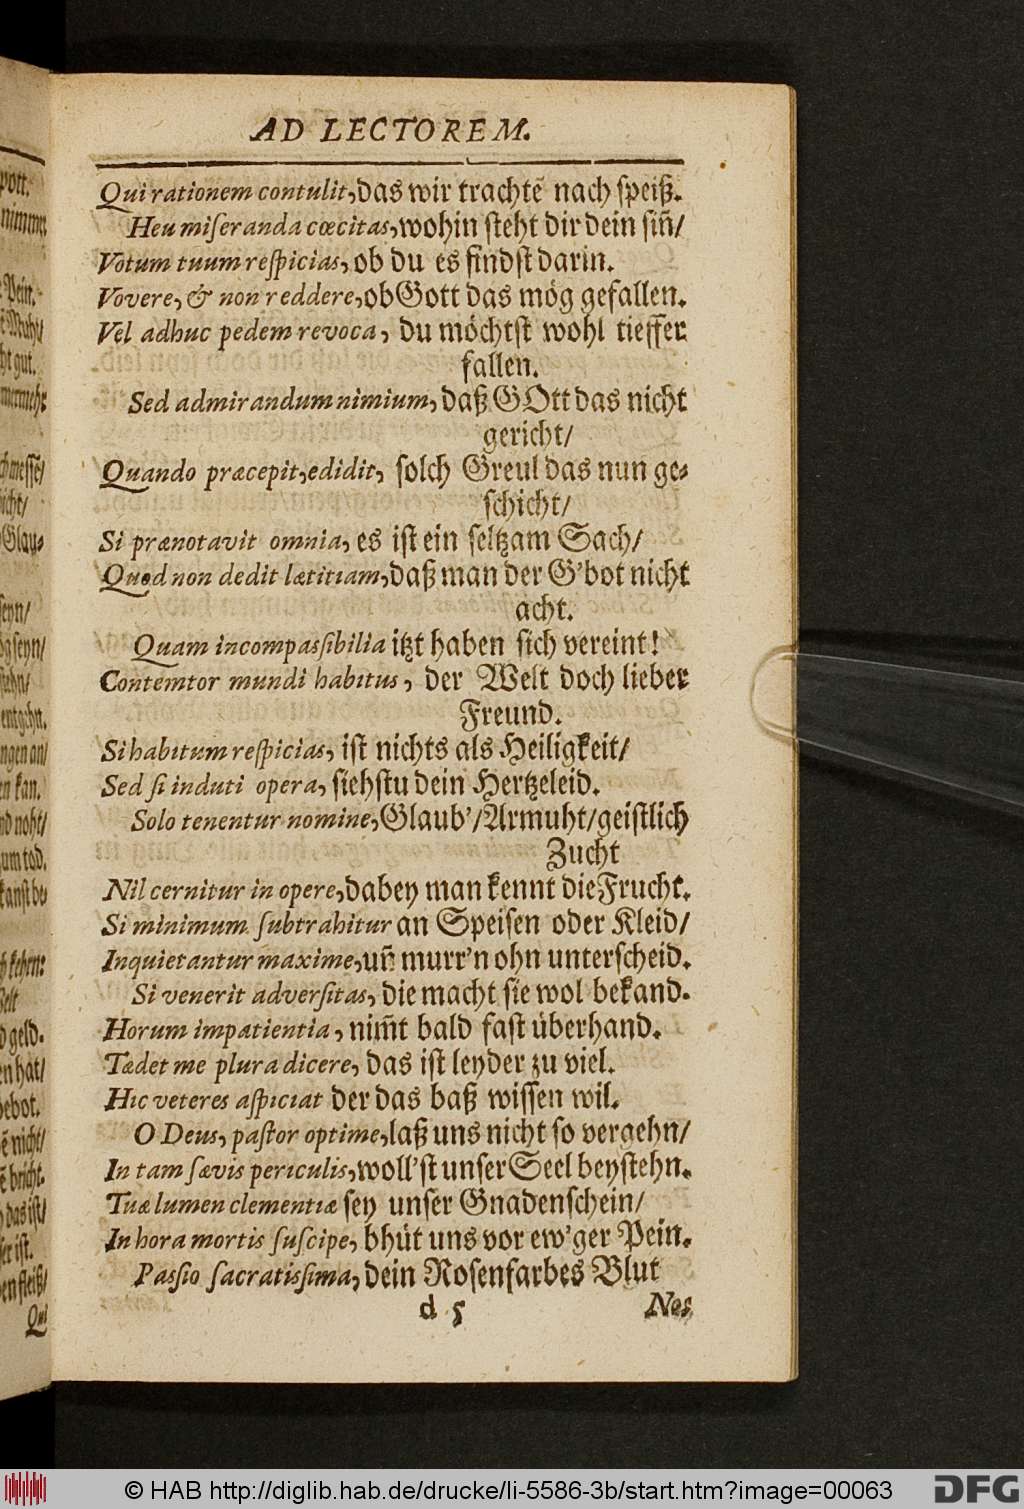 AD LECTOREM.
Qui rationem contulit, das wir trachtẽ nach speiß.
Heu miſeranda cœcitas, wohin steht dir dein siñ/
Votum tuum reſpicias, ob du es findst darin.
Vovere, & non reddere, ob Gott das mög gefallen.
Vel adhuc pedem revoca, du möchtst wohl tieffer
fallen.
Sed admirandum nimium, daß GOtt das nicht
gericht/
Quando præcepit, edidit, solch Greul das nun ge-
schicht/
Si prænotavit omnia, es ist ein seltzam Sach/
Quod non dedit lætitiam, daß man der G'bot nicht
acht.
Quam incompaſsibilia itzt haben sich vereint!
Contemtor mundi habitus, der Welt doch lieber
Freund.
Si habitum reſpicias, ist nichts als Heiligkeit/
Sed ſi induti opera, siehstu dein Hertzeleid.
Solo tenentur nomine, Glaub'/Armuht/geistlich
Zucht
Nil cernitur in opere, dabey man kennt die Frucht.
Si minimum ſubtrahitur an Speisen oder Kleid/
Inquietantur maxime, uñ murr'n ohn unterscheid.
Si venerit adverſitas, die macht sie wol bekand.
Horum impatientia, nim̃t bald fast überhand.
Tædet me plura dicere, das ist leyder zu viel.
Hic veteres aſpiciat der das baß wissen wil.
O Deus, paſtor optime, laß uns nicht so vergehn/
In tam ſævis periculis, woll'st unser Seel beystehn.
Tuæ lumen clementiæ sey unser Gnadenschein/
In hora mortis ſuſcipe, bhüt uns vor ew'ger Pein.
Paſsio ſacratiſsima, dein Rosenfarbes Blut
d 5 Nos
© HAB http://diglib.hab.de/drucke/li-5586-3b/start.htm?image=00063
DFG